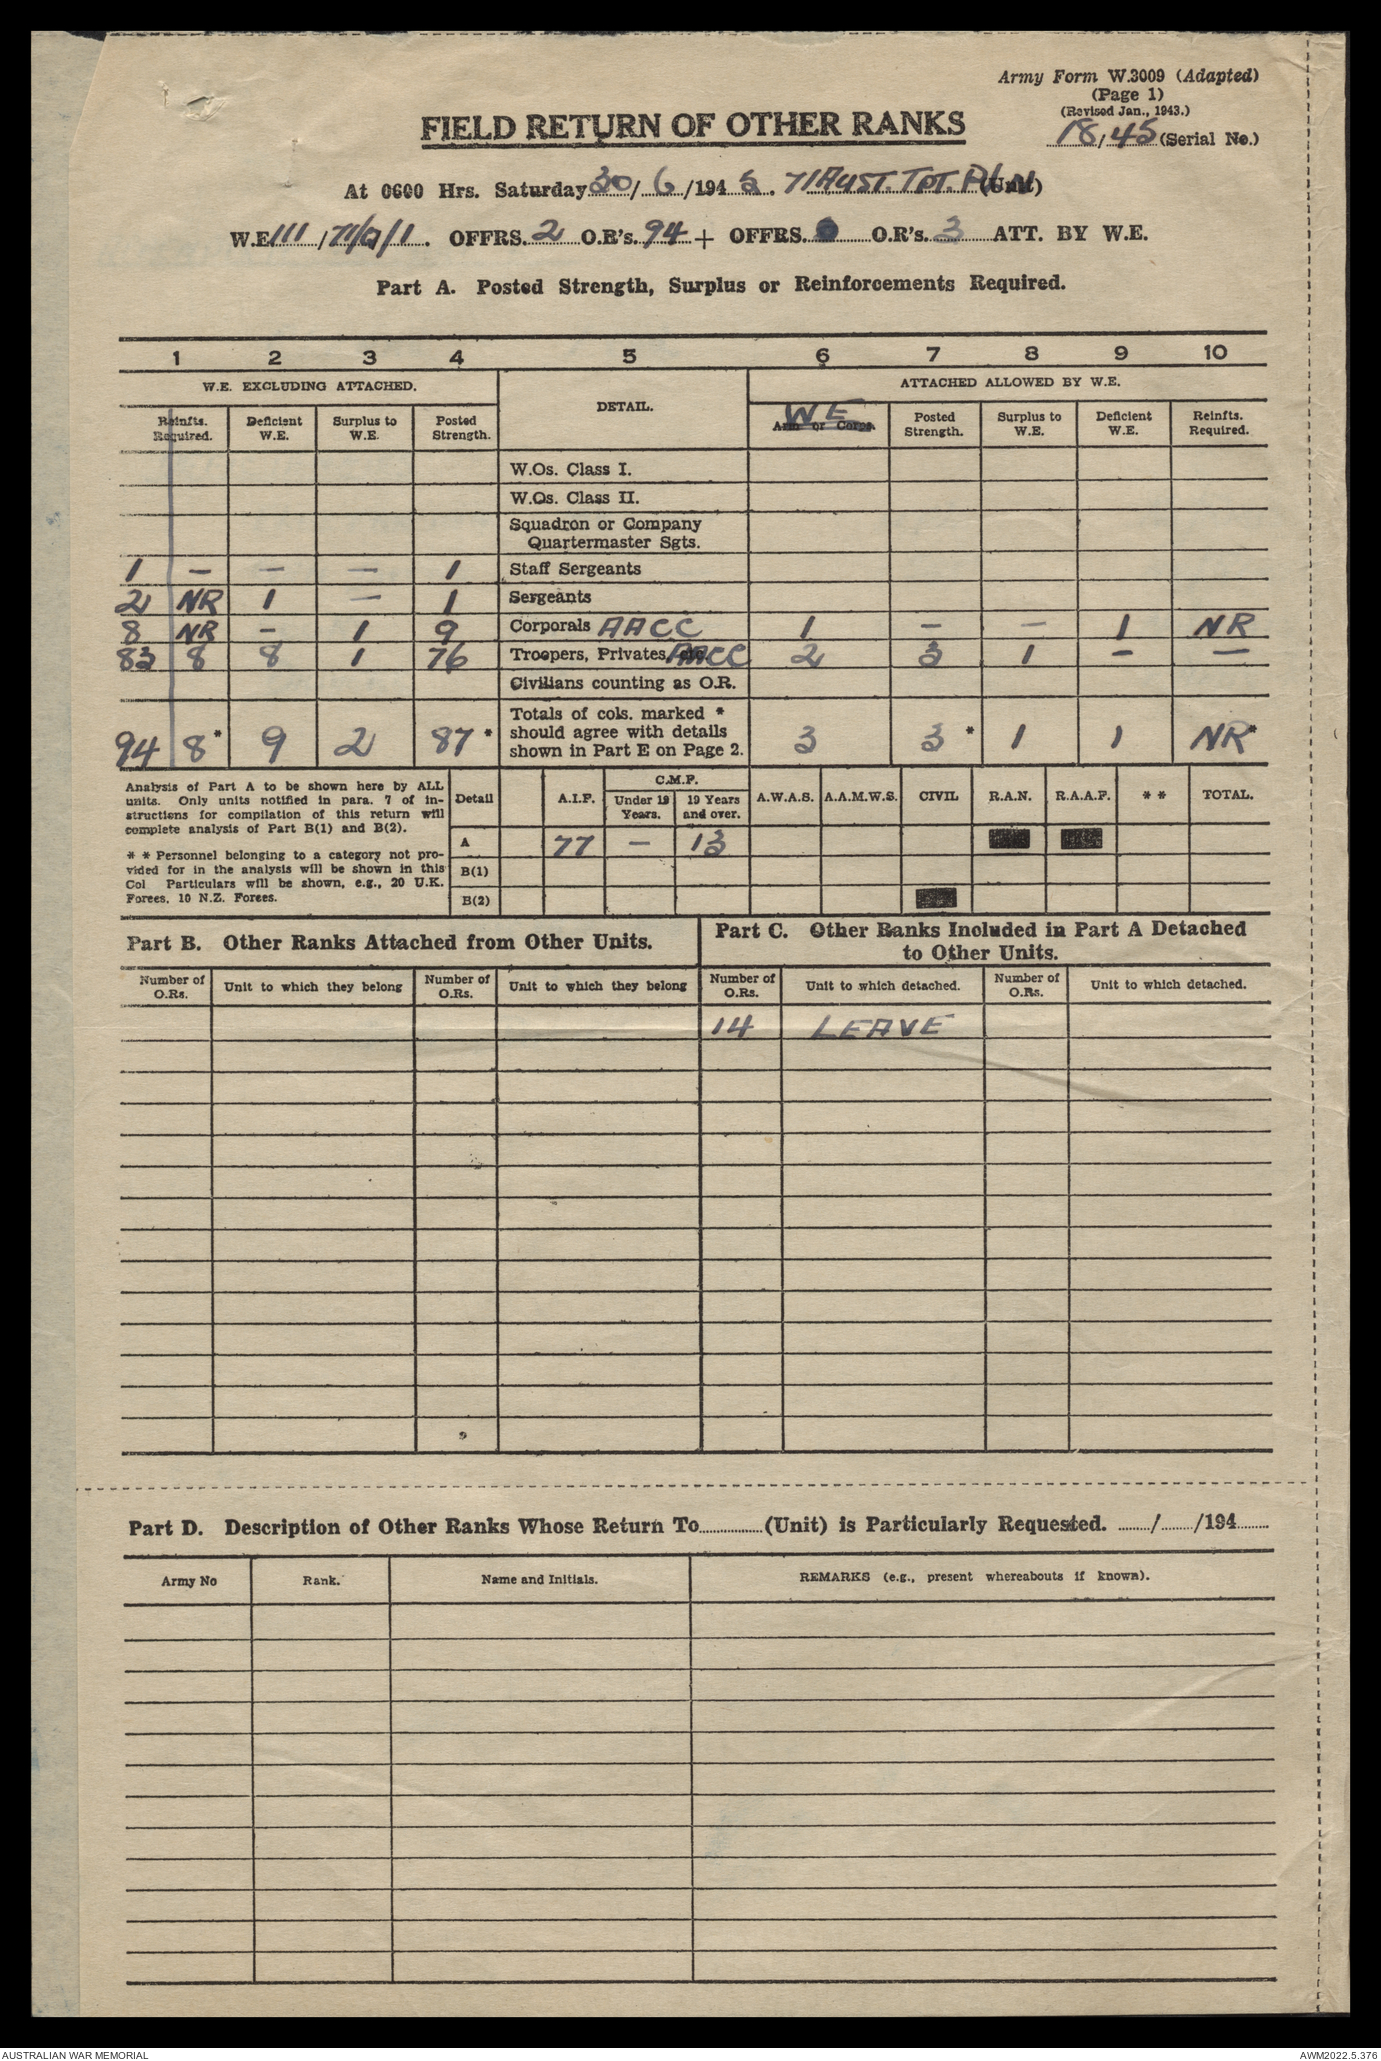 Army Form W.3009 (Adapted)
(Page 1)
(Revised Jan., 1943.)
18/45 (Serial No.)
FIELD RETURN OF OTHER RANKS
At 0600 Hrs. Saturday 30/6/1945. 71 AUST. TPT. PLN (Unit)
W.E. 111/ /1. OFFRS. 2 O.R's. 94 + OFFRS. O.R's. 3 ATT. BY W.E.
Part A. Posted Strength, Surplus or Reinforcements Required.
1 2 3 4 5 6 7 8 9 10
W.E. EXCLUDING ATTACHED. DETAIL. ATTACHED ALLOWED BY W.E.
Reinfts. Required. Deficient W.E. Surplus to W.E. Posted Strength. WE Arm or Corps. Posted Strength. Surplus to W.E. Deficient W.E. Reinfts. Required.
W.Os. Class I.
W.Os. Class II.
Squadron or Company
Quartermaster Sgts.
1 – – – 1 Staff Sergeants
2 NR 1 – 1 Sergeants
8 NR – 1 9 Corporals AACC 1 – – 1 NR
83 8 8 1 76 Troopers, Privates, etc. AACC 2 3 1 – –
Civilians counting as O.R.
Totals of cols. marked *
should agree with details
shown in Part E on Page 2.
94 8* 9 2 87* 3 3* 1 1 NR*
Analysis of Part A to be shown here by ALL
units. Only units notified in para. 7 of in-
structions for compilation of this return will
complete analysis of Part B(1) and B(2).
* * Personnel belonging to a category not pro-
vided for in the analysis will be shown in this
Col Particulars will be shown, e.g., 20 U.K.
Forces, 10 N.Z. Forces.
Detail A.I.F. C.M.F. Under 19 Years. 19 Years and over. A.W.A.S. A.A.M.W.S. CIVIL R.A.N. R.A.A.F. * * TOTAL.
A 77 – 13
B(1)
B(2)
Part B. Other Ranks Attached from Other Units.
Part C. Other Ranks Included in Part A Detached
to Other Units.
Number of O.Rs. Unit to which they belong Number of O.Rs. Unit to which they belong Number of O.Rs. Unit to which detached. Number of O.Rs. Unit to which detached.
14 LEAVE
Part D. Description of Other Ranks Whose Return To (Unit) is Particularly Requested. / /194
Army No Rank. Name and Initials. REMARKS (e.g., present whereabouts if known).
AUSTRALIAN WAR MEMORIAL AWM2022.5.376